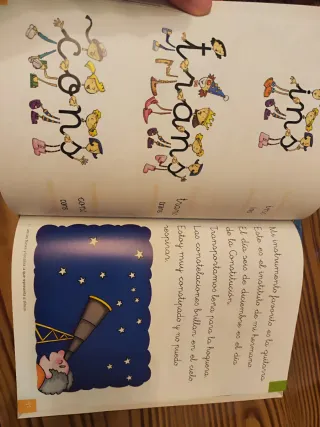 cons
trans
ins
Mi instrumento favorito es la guitarra.
Este es el instituto de mi hermano.
El día seis de diciembre es el día
de la Constitución.
Transportamos leña para la hoguera.
Las constelaciones brillan en el cielo.
Estoy muy constipado y no puedo
respirar.